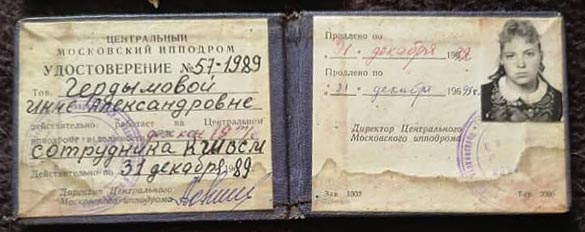 ЦЕНТРАЛЬНЫЙ
МОСКОВСКИЙ ИППОДРОМ
УДОСТОВЕРЕНИЕ №57-1989
Тов. Гердымовой
Инне Александровне
действительно работает на Центральном
ипподроме
сотрудника КШВСМ
Действительно по 31 декабря 1989.
Директор Центрального
Московского ипподрома
Продлено по
31 декабря
Продлено по
31 декабря 196
Директор Центрального
Московского ипподрома
Зак. 1003
Тир. 2000